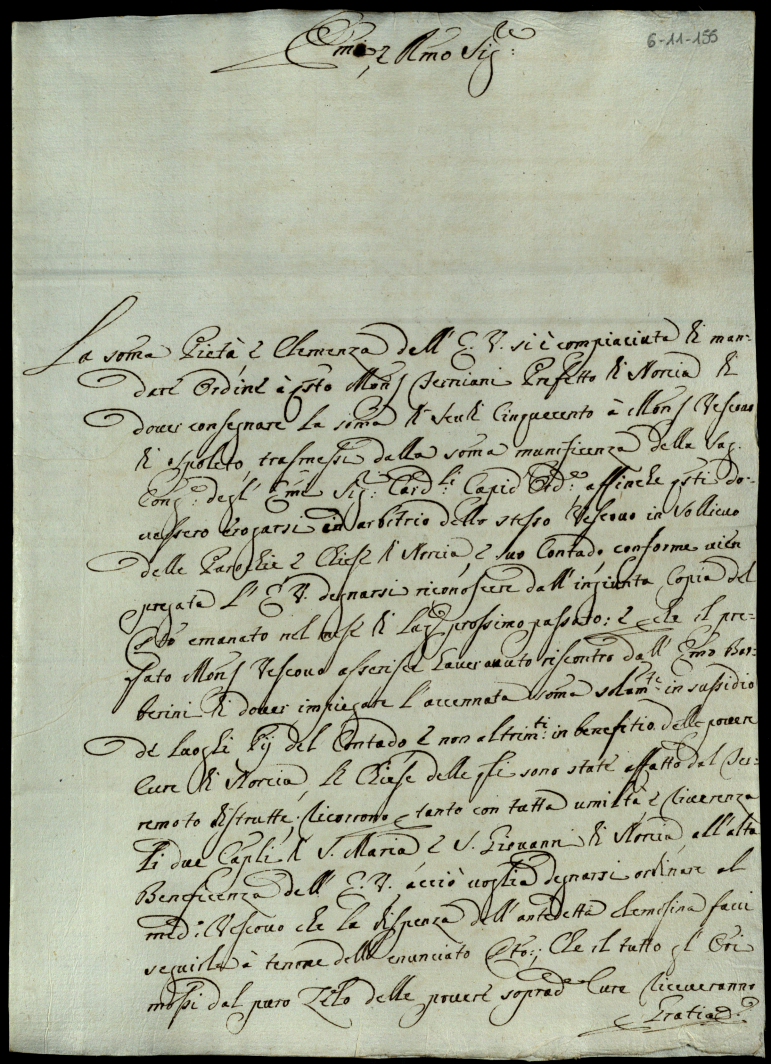 6-11-155
Emi, e Rmo Sig.re
La soma Pietà, e Clemenza dell' E. V. si è compiaciuta di man-
dare Ordine à q'sto Mons. Cerniani Prefetto di Norcia di
dover consegnare la soma di scudi Cinquecento à Mons. Vescovo
di Spoleto, trasmessi dalla soma munificenza della Sag.
Cong.e degl' Emi Sig.ri Card.li affinche q'sti do-
vessero erogarsi in arbitrio dello stesso Vescovo in sollievo
delle Parochie e Chiese di Norcia, e suo Contado, conforme vien
pregata l' E. V. degnarsi riconoscere dall' ingiunta Copia del
emanato nel mese di prossimo passato: e che il pre-
fato Mons. Vescovo asserisce haver avuto riscontro dall' Emo Bar-
berini di dover impiegare l'accennata soma solam.te in sussidio
de Luoghi Pij del Contado e non altrim.ti in benefitio delle povere
Cure di Norcia, le Chiese delle q'li sono state affatto dal Ter-
remoto distrutte; Ricorrono p tanto con tutta umiltà e Riverenza
li due Capli di S. Maria, e S. Giovanni di Norcia, all' alta
Beneficenza dell' E. V. acciò voglia degnarsi ordinare al
med.o Vescovo che la dispenza dell' antedetta elemosina facci
seguirla à tenore dell' enunciato Che il tutto gl' Ori
mossi dal puro Zelo delle povere soprad.e Cure riceveranno
p Gratia &c.